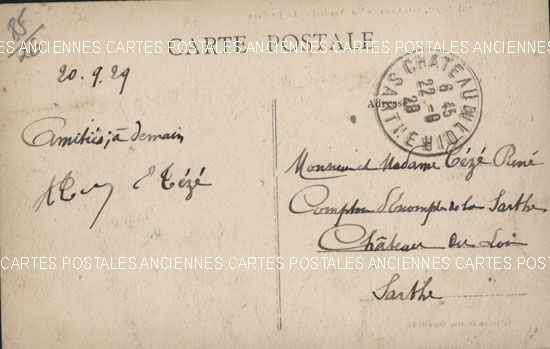 85
CARTE POSTALE
CARTES POSTALES ANCIENNES CARTES POSTALES ANCIENNES CARTES POSTALES ANCIENNES
20.9.29
Adresse
CHATEAU DU LOIR SARTHE
6 45
22 -9
29
Amitiés, à demain
Tézé
Monsieur et Madame Tézé René
Comptoir d'Escompte de la Sarthe
Château du Loir
CARTES POSTALES ANCIENNES CARTES POSTALES ANCIENNES CARTES POSTALES ANCIENNES
Sarthe